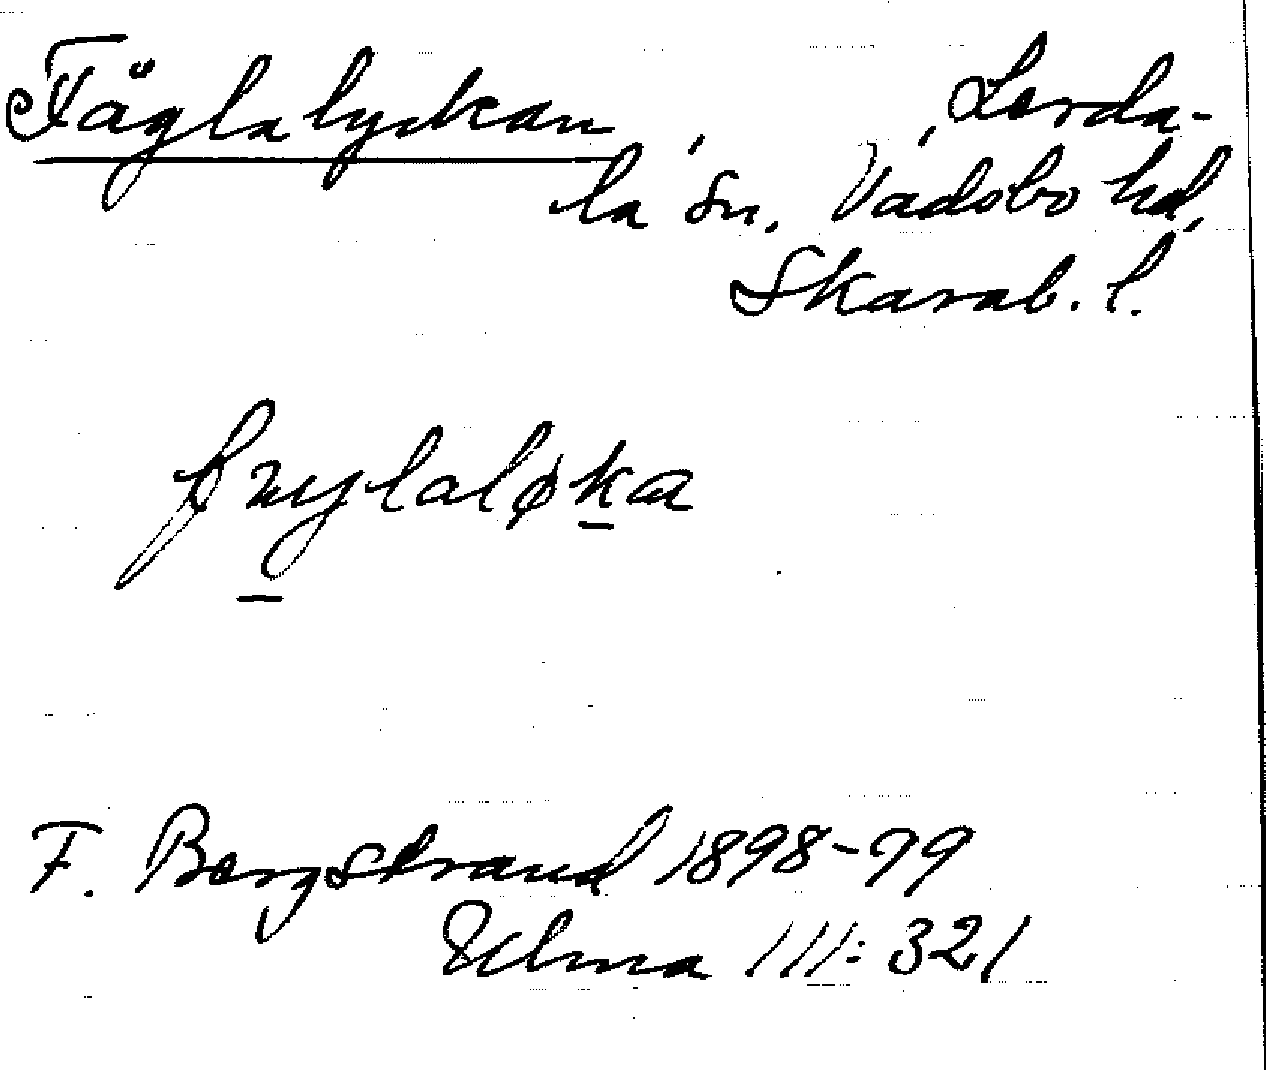 Fäglalyckan, , Lerda-
la sn. Vadsbo hd,
Skarab. l.
F. Bergstrand 1898-99
Ulma 111:321